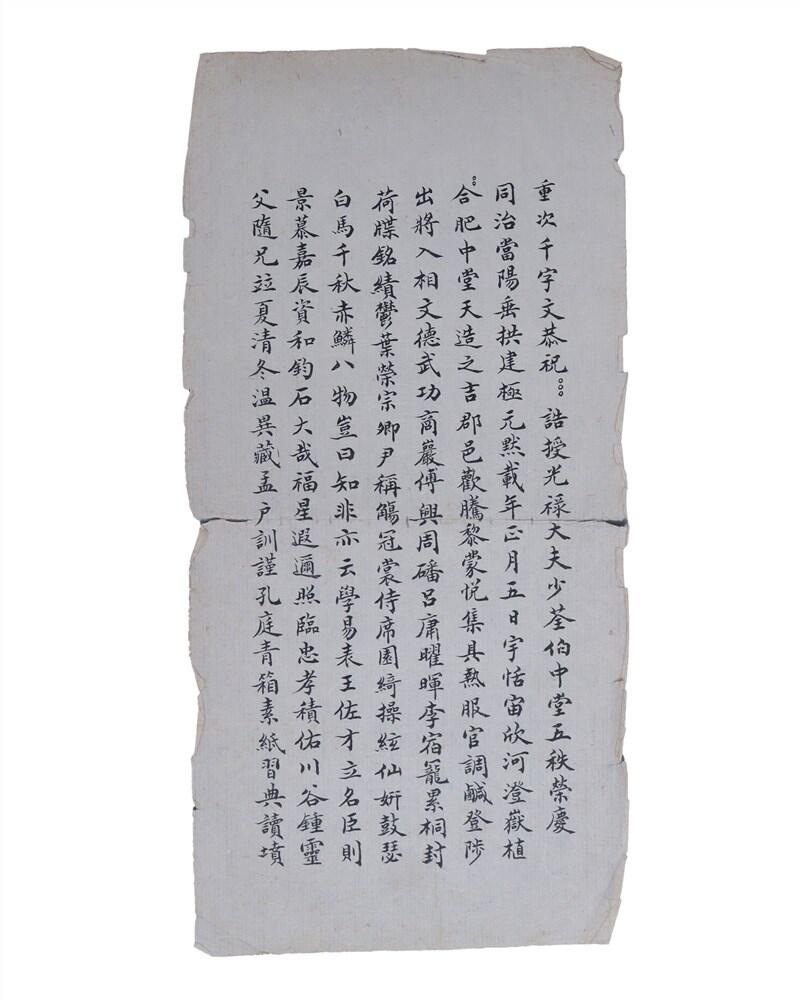 重次千字文恭祝。。。誥授光祿大夫少荃伯中堂五秩榮慶
同治當陽垂拱建極元默載年正月五日宇恬宙欣河澄嶽植
。。合肥中堂天造之吉郡邑歡騰黎蒙悅集具熱服官調鹹登陟
出將入相文德武功商巖傅興周磻呂庸曜暉李宿寵累桐封
荷牒銘績鬱葉榮宗卿尹稱觴冠裳侍席園綺操絃仙妍鼓瑟
白馬千秋赤鱗八物豈曰知非亦云學易表王佐才立名臣則
景慕嘉辰資和鈞石大哉福星遐邇照臨忠孝積佑川谷鍾靈
父隨兄竝夏清冬溫異藏孟戶訓謹孔庭青箱素紙習典讀墳